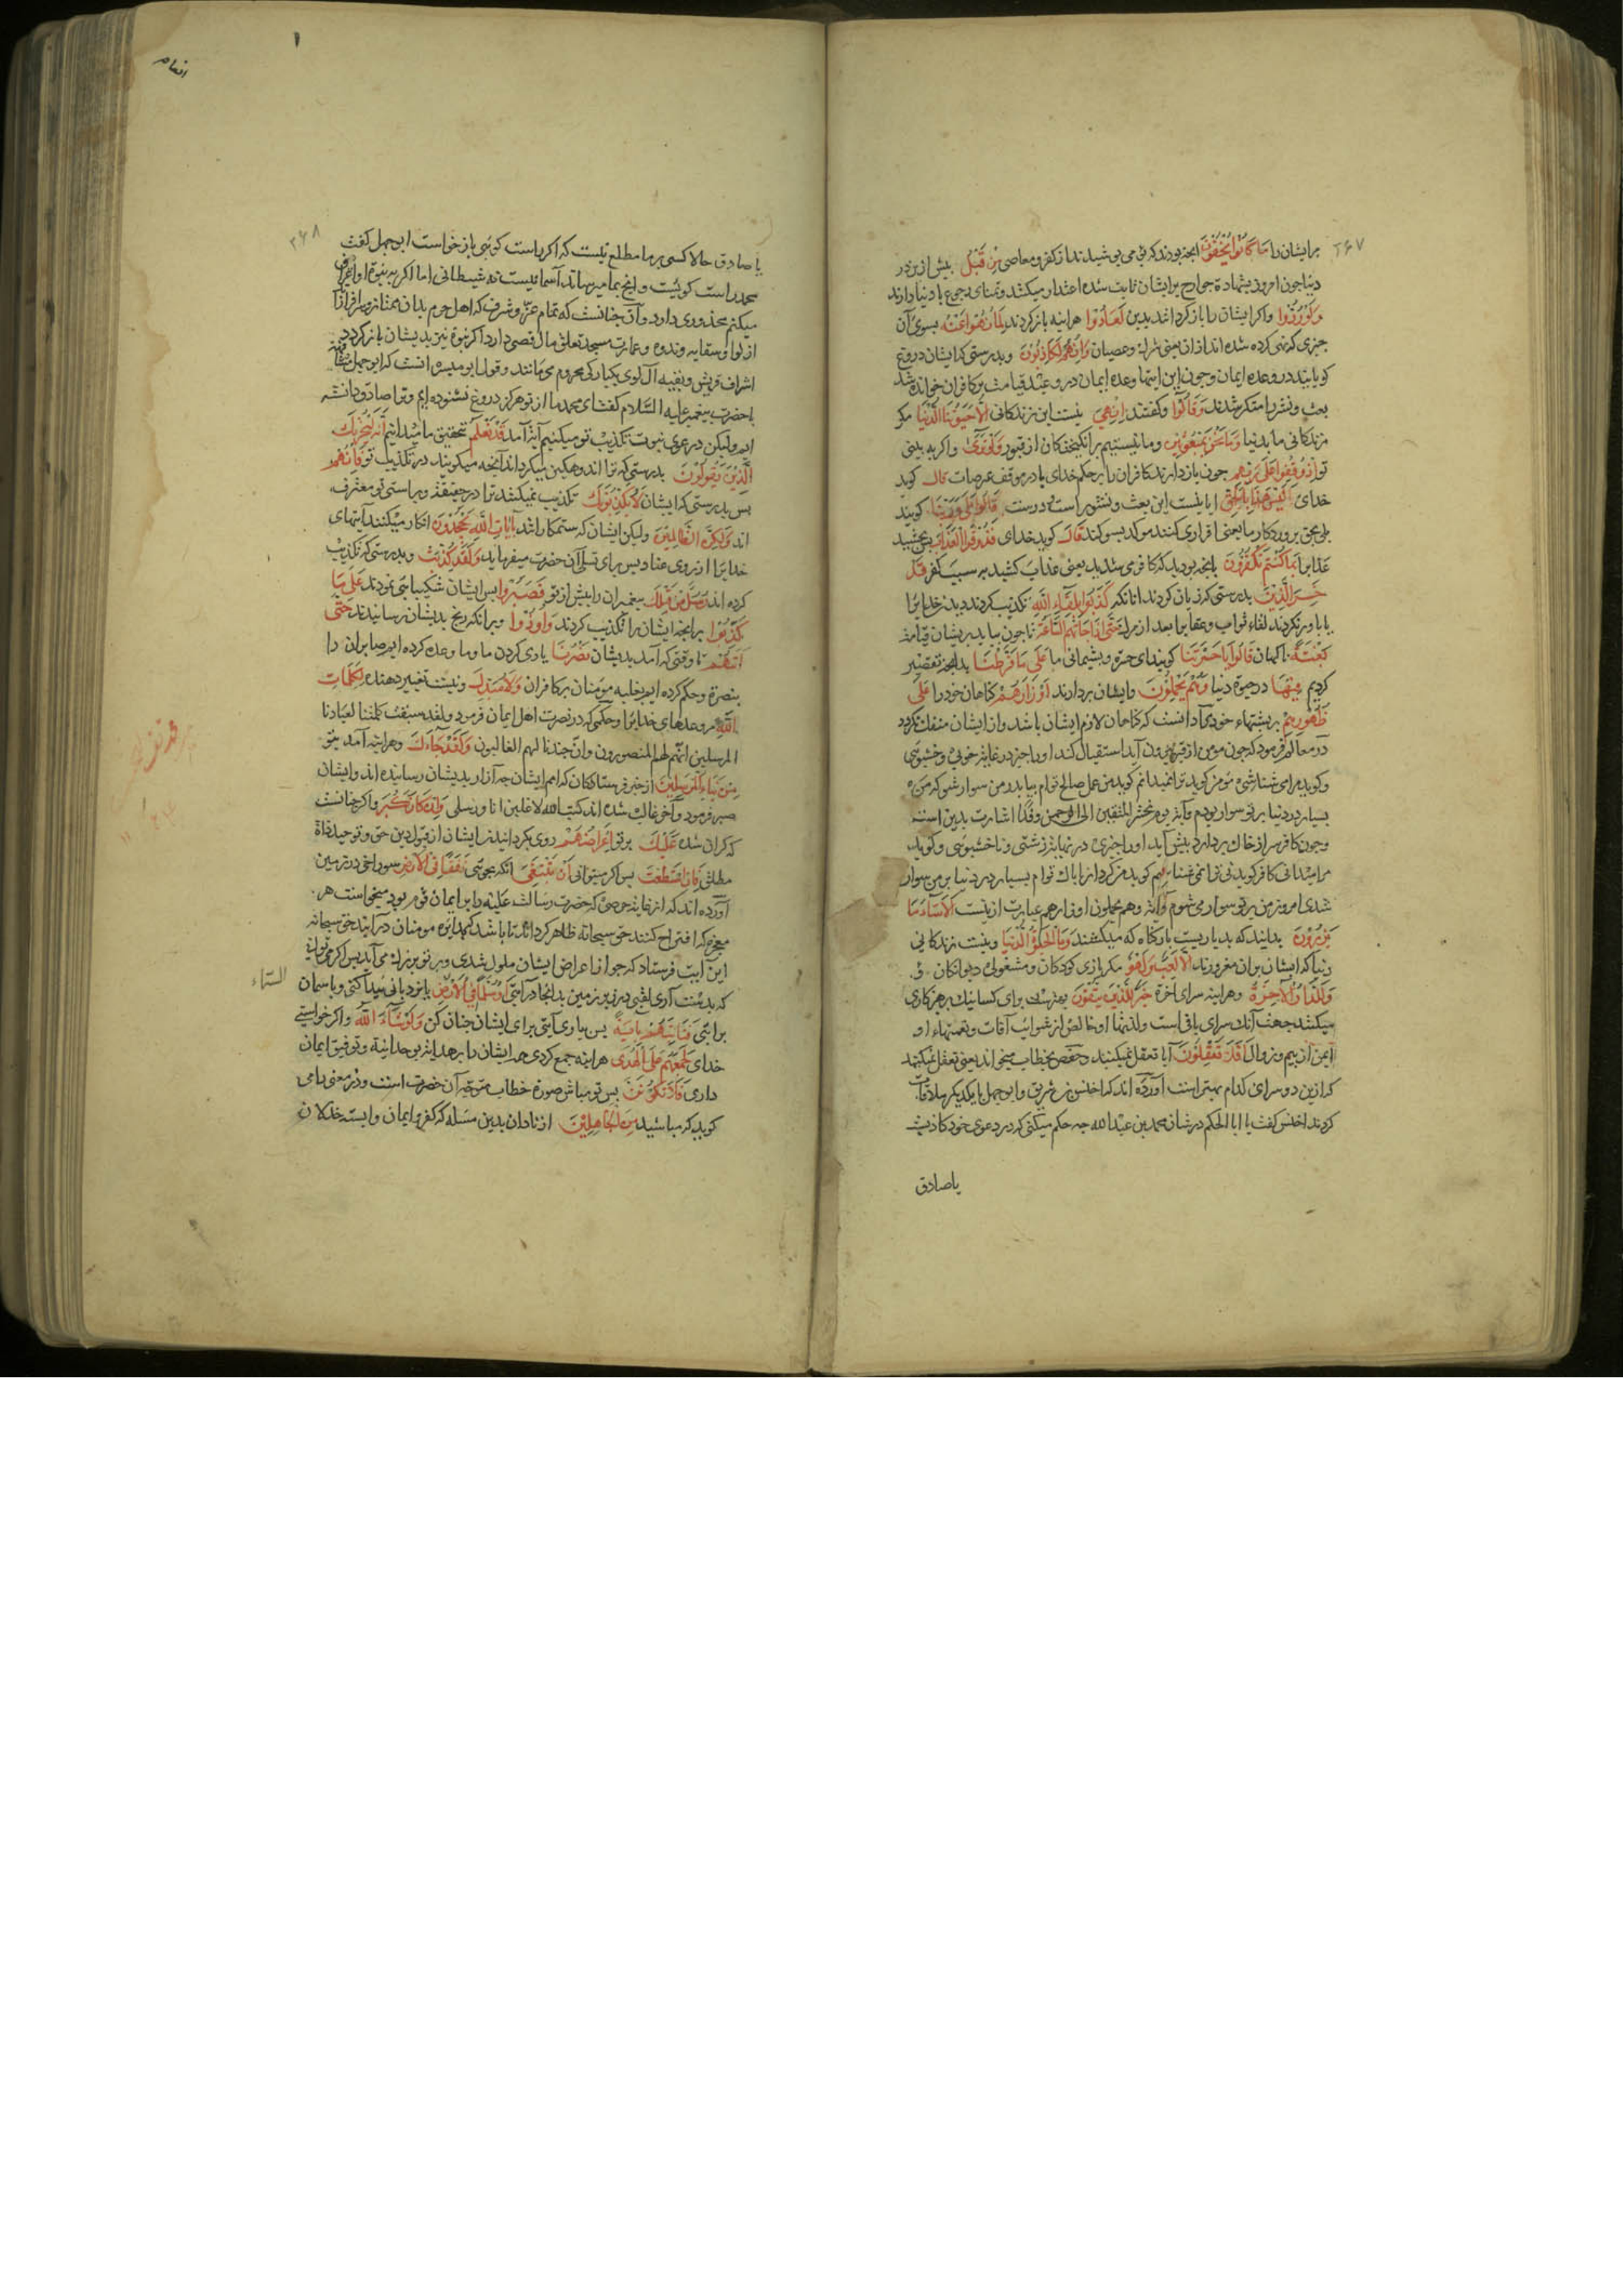 ۲۶۷
بر ایشان را مَا كَانُوا يُخْفُونَ آنچه بودند که می پوشیدند از کفر و معاصی مِنْ قَبْلُ پیش ازین در
دنیا چون امروز بشهادة جوارح بر ایشان ثابت شده اعتذار میکنند و تمنای رجوع با دنیا دارند
وَلَوْ رُدُّوا و اکر ایشان را باز کردانند بدین لَعَادُوا هر اینه باز کردند لِمَا نُهُوا عَنْهُ بسوی آن
چیزی که نهی کرده شده اند از ان یعنی شرك و عصیان وَإِنَّهُمْ لَكَاذِبُونَ و بدرستی که ایشان دروغ
کویانند در وعده ایمان و چون این ایتها وعده ایمان و وعید قیامت بر کافران خوانده شد
بعث و نشر را منکر شدند وَقَالُوا و کفتند إِنْ هِيَ نیست این زندکانی إِلَّا حَيَاتُنَا الدُّنْيَا مکر
زندکانی ما بدنیا وَمَا نَحْنُ بِمَبْعُوثِينَ و ما نیستیم برانکیختکان از قبور وَلَوْ تَرَى و اکر به بینی
تو إِذْ وُقِفُوا عَلَى رَبِّهِمْ چون باز دارند کافران را بر حکم خدای یا در موقف عرصات قَالَ کوید
خدای أَلَيْسَ هَذَا بِالْحَقِّ ایا نیست این بعث و نشور راست و درست قَالُوا بَلَى وَرَبِّنَا کویند
بلی بحق پروردکار ما یعنی اقراری کنند موکد بسوکند قَالَ کوید خدای فَذُوقُوا الْعَذَابَ پس بچشید
عذاب را بِمَا كُنْتُمْ تَكْفُرُونَ بانچه بودید که کافر می شدید یعنی عذاب کشید به سبب کفر قَدْ
خَسِرَ الَّذِينَ بدرستی که زیان کردند انانکه كَذَّبُوا بِلِقَاءِ اللَّهِ تکذیب کردند دیدن خدایرا
یا باور نکردند لقاء ثواب و عقاب را بعد از مرك حَتَّى إِذَا جَاءَتْهُمُ السَّاعَةُ تا چون بیاید بریشان قیامة
بَغْتَةً ناکهان قَالُوا يَا حَسْرَتَنَا کویند ای حسرة و پشیمانی ما عَلَى مَا فَرَّطْنَا بدانچه تقصیر
کردیم فِيهَا در حیوة دنیا وَهُمْ يَحْمِلُونَ و ایشان بردارند أَوْزَارَهُمْ کناهان خود را عَلَى
ظُهُورِهِمْ بر پشتهاء خود مراد انست که کناهان لازم ایشان باشد و از ایشان منفك نکردد
در معالم فرمود که چون مومن از قبر بیرون آید استقبال کند او را چیزی در غایة خوبی و خشبوئی
و کوید مرا می شناسی مومن کوید ترا نمیدانم کوید من عمل صالح توام بیا بر من سوار شو که من
بسیار در دنیا بر تو سوار بودم و آیة یوم نحشر المتقین الی الرحمن وفدا اشارت بدین است
و چون کافر سر از خاك بردارد پیش آید او را چیزی در نهایة زشتی و ناخشبوئی و کوید
مرا میدانی کافر کوید نی ترا نمی شناسم کوید من کردار ناپاك توام بسیار در دنیا بر من سوار
شدی امروز من بر تو سوار می شوم و آیة وهم یحملون اوزارهم عبارت ازینست أَلَا سَاءَ مَا
يَزِرُونَ بدانید که بد باریست بار کناه که میکشند وَمَا الْحَيَوةُ الدُّنْيَا و نیست زندکانی
دنیا که ایشان بران مغرورند إِلَّا لَعِبٌ وَلَهْوٌ مکر بازی کودکان و مشغولی دیوانکان
وَلَلدَّارُ الْآخِرَةُ و هر اینه سرای اخرة خَيْرٌ لِلَّذِينَ يَتَّقُونَ بهترست برای کسانیکه پرهیزکاری
میکنند جهت آنکه سرای باقی است و لذتها او خالص از شوائب آفات و نعمتهاء او
ایمن از بیم و زوال أَفَلَا تَعْقِلُونَ آیا تعقل نمیکنید و حفص بخطاب میخواند یعنی تعقل نمیکنید
که ازین دو سرای کدام بهتر است آورده اند که اخنس بن شریق و ابو جهل با یکدیکر ملاقات
کردند اخنس کفت یا ابا الحکم در شان محمد بن عبد الله چه حکم میکنی که در دعوی خود کاذبست
یا صادق
انعام
۲۶۸
یا صادق حالا کسی بر ما مطلع نیست که اکر راست کوئی باز خواست ابو جهل کفت
محمد راست کویست و انچ بما میرساند آسمانیست نه شیطانی اما اکر به نبوة او اعتراف
میکنم محذوری دارد و آن چنانست که تمام عز و شرف که اهل حرم بدان ممتاز و سرافرازند
از لوا و سقایه و ندوه و عمارت مسجد تعلق مال قصی دارد اکر نبوة نیز بدیشان باز کردد
اشراف قریش و بقیه آل لوی بیکبارکی محروم می مانند و قول ابو میسره انست که ابو جهل
با حضرت پیغمبر علیه السلام کفت ای محمد ما از تو هرکز دروغ نشنوده ایم و ترا صادق دانسته
ایم ولیکن در دعوی نبوت تکذیب تو میکنیم آیة آمد قَدْ نَعْلَمُ تحقیق ما میدانیم إِنَّهُ لَيَحْزُنُكَ
الَّذِي يَقُولُونَ بدرستی که ترا اندوهکین میکرداند آنچه میکویند در تکذیب تو فَإِنَّهُمْ
پس بدرستی که ایشان لَا يُكَذِّبُونَكَ تکذیب نمیکنند ترا در حقیقة و براستی تو معترف
اند وَلَكِنَّ الظَّالِمِينَ ولیکن ایشان که ستمکارانند بِآيَاتِ اللَّهِ يَجْحَدُونَ انکار میکنند آیتهای
خدایرا از روی عناد پس برای تسلی آن حضرت میفرماید وَلَقَدْ كُذِّبَتْ و بدرستی که تکذیب
کرده اند رُسُلٌ مِنْ قَبْلِكَ پیغمبران را پیش از تو فَصَبَرُوا پس ایشان شکیبائی نمودند عَلَى مَا
كُذِّبُوا بر انچه ایشان را تکذیب کردند وَأُوذُوا و بر انکه رنج بدیشان رسانیدند حَتَّى
أَتَاهُمْ تا وقتی که آمد بدیشان نَصْرُنَا یاری کردن ما و ما وعده کرده ایم صابران را
بنصرة و حکم کرده ایم بغلبه مومنان بر کافران وَلَا مُبَدِّلَ و نیست تغییر دهنده لِكَلِمَاتِ
اللَّهِ مر وعدهای خدایرا و حکمی که در نصرت اهل ایمان فرمود و لقد سبقت کلمتنا لعبادنا
المرسلین انهم لهم المنصورون و ان جندنا لهم الغالبون وَلَقَدْ جَاءَكَ و هر اینه آمد بتو
مِنْ نَبَإِ الْمُرْسَلِينَ از خبر فرستادکان که امم ایشان چه آزار بدیشان رسانیده اند و ایشان
صبر فرمودند و آخر غالب شده اند کتب الله لاغلبن انا و رسلی وَإِنْ كَانَ كَبُرَ و اکر چنانست
که کران شده عَلَيْكَ بر تو إِعْرَاضُهُمْ روی بکردانیدن ایشان از قبول دین حق و توحید ذاة
مطلق فَإِنِ اسْتَطَعْتَ پس اکر میتوانی أَنْ تَبْتَغِيَ آنکه بجوئی نَفَقًا فِي الْأَرْضِ سوراخی در زمین
آورده اند که از غایة حرصی که حضرت رسالت علیه را بر ایمان قوم بود میخواست هر
معجزه که اقتراح کنند حق سبحانه ظاهر کرداند تا باشد که بدایره مومنان در آیند حق سبحانه
این ایت فرستاد که چو از اعراض ایشان ملول شدی و بر تو بزرك می آید پس اکر می توانی
که بدست آری نقبی در زیر زمین بدانجا در آئی أَوْ سُلَّمًا فِي السَّمَاءِ یا نردبانی پیدا کنی و باسمان
السماء
بر ائی فَتَأْتِيَهُمْ بِآيَةٍ پس بیاری آیتی برای ایشان چنان کن وَلَوْ شَاءَ اللَّهُ و اکر خواستی
خدای لَجَمَعَهُمْ عَلَى الْهُدَى هر اینه جمع کردی همه ایشان را بر هدایة بوحدانیة و توفیق ایمان
دادی فَلَا تَكُونَنَّ پس تو مباش صورة خطاب متوجه آن حضرت است و در معنی با می
کوید که مباشید مِنَ الْجَاهِلِينَ از نادان بدین مسئله که کفر و ایمان وابسته خذلان